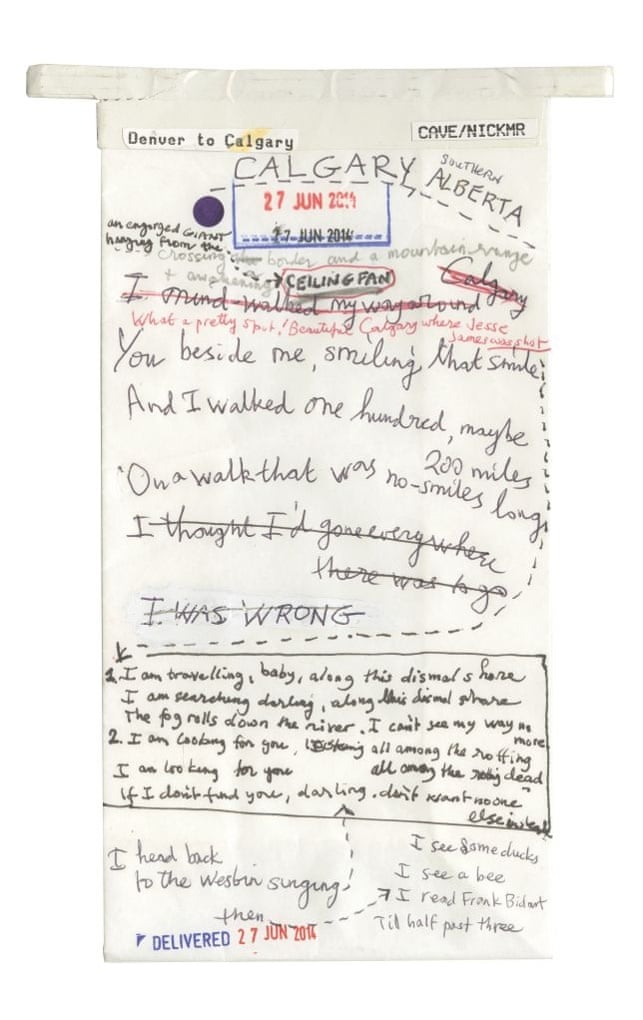 Denver to Calgary
CAVE/NICKMR
CALGARY, SOUTHERN
ALBERTA
27 JUN 2014
27 JUN 2014
an engorged GIANT
hanging from the
crossing the border and a mountain range
+ awakening → CEILING FAN
Calgary
I mind-walked my way around
What a pretty spot! Beautiful Calgary where Jesse
James was shot
You beside me, smiling that smile
And I walked one hundred, maybe
200 miles
On a walk that was no-smiles long
I thought I'd gone everywhere
there was to go
I WAS WRONG
1. I am travelling, baby, along this dismal shore
I am searching darling, along this dismal shore
The fog rolls down the river. I can't see my way no
more
2. I am looking for you, all among the rotting
I am looking for you all among the dead
If I don't find you, darling. don't want no one
else
I head back
to the Westin singing
then
I see some ducks
I see a bee
I read Frank Bidart
Till half past three
DELIVERED 27 JUN 2014